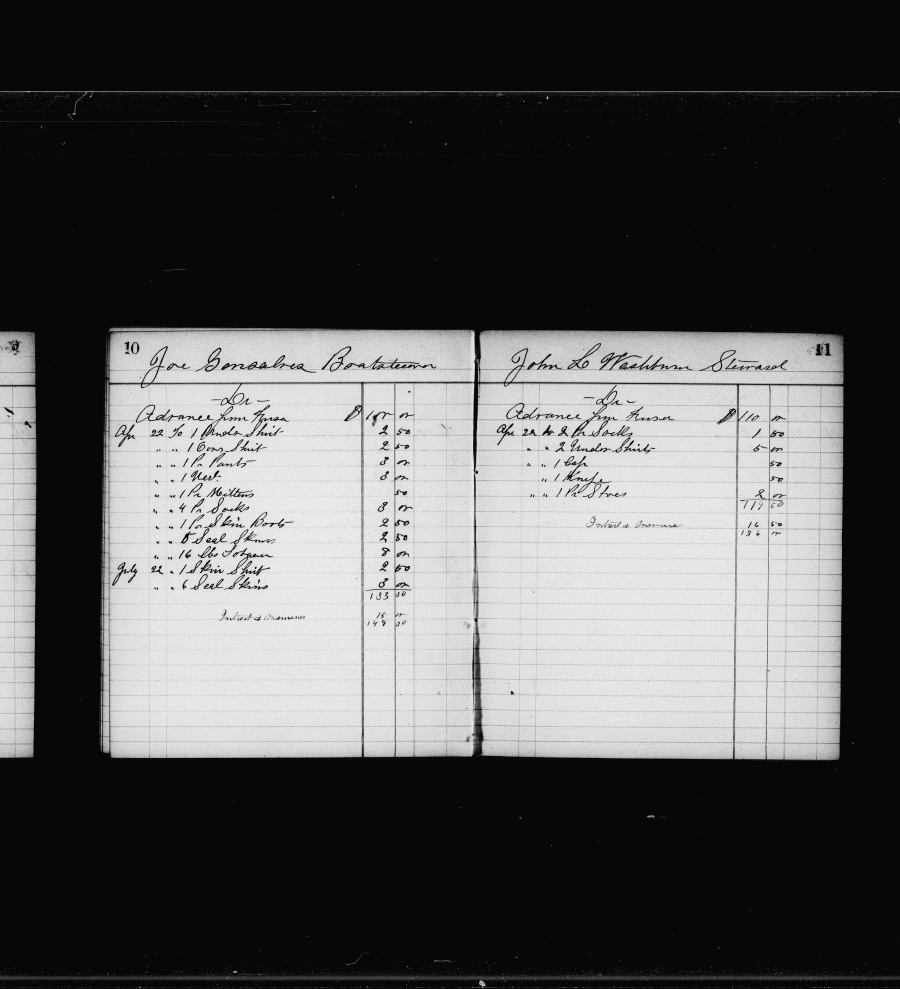 10
Joe Gonsalves Boatsteerer
-Dr-
Advance from Ansa $ 100 00
Apr 22 To 1 Under Shirt 2 50
" " 1 Over Shirt 2 50
" " 1 Pr Pants 3 00
" " 1 Vest 3 00
" " 1 Pr Mittens 50
" " 4 Pr Socks 3 00
" " 1 Pr Skin Boots 2 50
" " 5 Seal Skins 2 50
" " 16 lbs Tobacco 8 00
July 22 " 1 Skin Shirt 2 50
" " 6 Seal Skins 3 00
133 00
Intrest & Insurance 15 00
148 00
11
John L Washburn Steward
-Dr-
Advance from $ 110 00
Apr 22 to 2 Pr Socks 1 50
" " 2 Under Shirts 5 00
" " 1 Cap 50
" " 1 Knife 50
" " 1 Pr Shoes 2 00
119 50
Intrest & Insurance 16 50
136 00